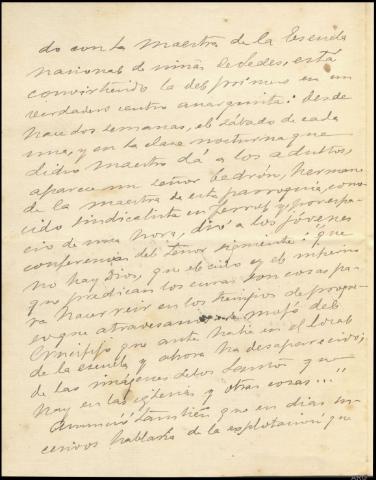 do con la maestra de la Escuela
nacional de niñas de Sedes, está
convirtiendo la del primero en un
verdadero centro anarquista: desde
hace dos semanas, el sábado de cada
una, y en la clase nocturna que
dicho maestro dá a los adultos,
aparece un señor Pedrón, hermano
de la maestra de esta parroquia, cono-
cido sindicalista en Ferrol y, por espa-
cio de una hora, dió a los jóvenes
conferencias del tenor siguiente: "que
no hay Dios, que el cielo y el infierno
que predican los curas son cosas pa-
ra hacer reir en los tiempos de progre-
so que atravesamos mofó del
Crucifijo que antes había en el local
de la escuela y ahora ha desaparecido;
de las imágenes de los Santos que
hay en las iglesias y otras cosas..."
Anunció también que en días su-
cesivos hablaría de la explotación que